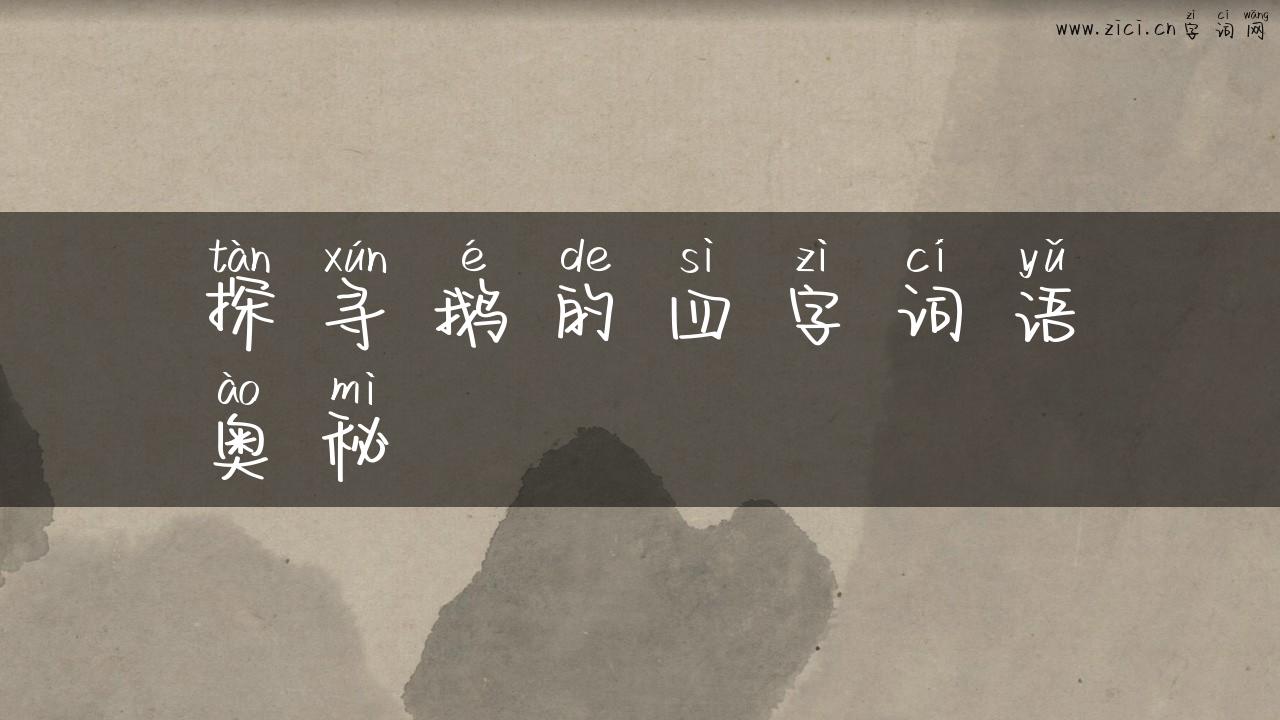 zì cí wǎng
www.zici.cn 字词网
tàn xún é de sì zì cí yǔ
探寻鹅的四字词语
ào mì
奥秘